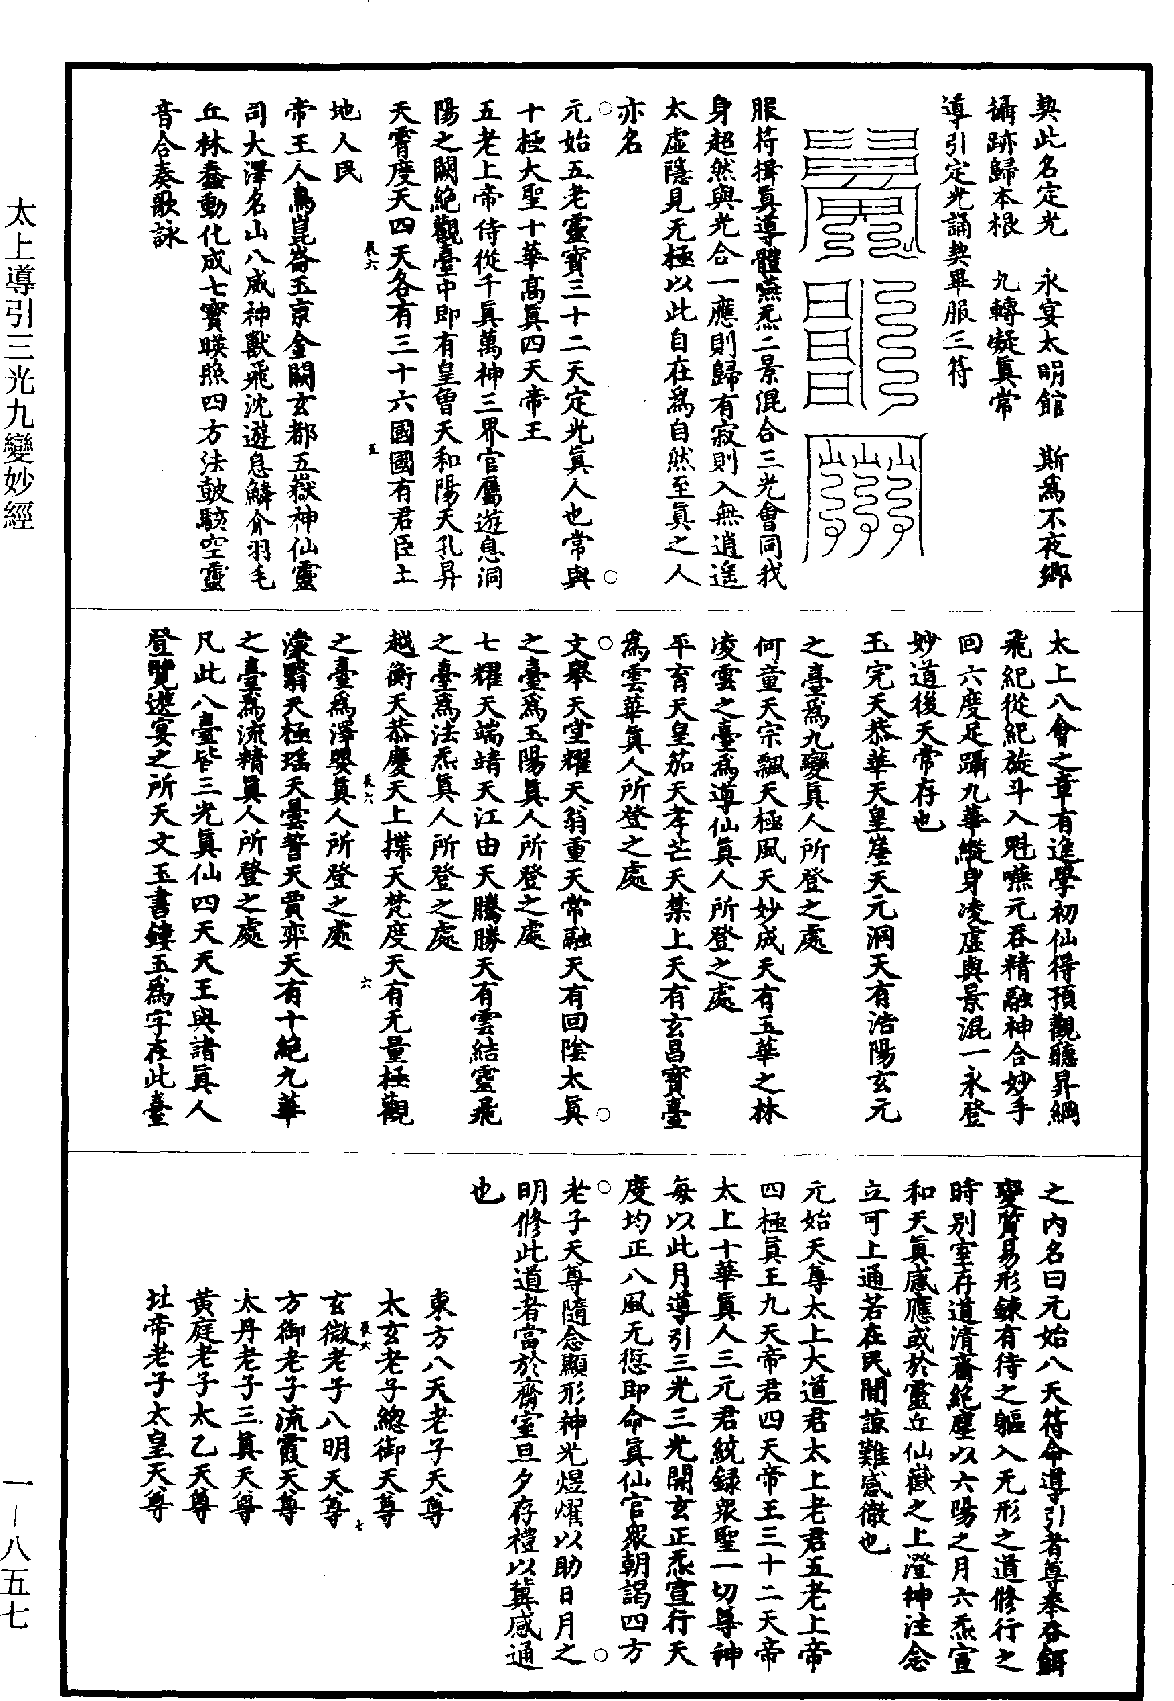 契此名定光　永宴太明館　斯爲不夜鄉
攝跡歸本根　九轉凝眞常
導引定光誦契畢服三符
服符揖眞導體嚥炁二景混合三光會同我
身超然與光合一應則歸有寂則入無逍遙
太虛隱見无極以此自在爲自然至眞之人
亦名
元始五老靈寶三十二天定光眞人也常與
十極大聖十華高眞四天帝王
五老上帝侍從千眞萬神三界官屬遊息洞
陽之闕絶觀臺中即有皇曾天和陽天孔昇
天霄度天四天各有三十六國國有君臣土
長六
五
地人民
帝王人鳥崑崙玉京金闕玄都五嶽神仙靈
司大澤名山八威神獸飛沈遊息鱗介羽毛
丘林蠢動化成七寶暎照四方法皷駭空靈
音合奏歌詠
太上八會之章有進學初仙得預觀聽昇綱
飛紀從紀旋斗入魁嚥元吞精融神合妙手
回六度足躡九華縱身凌虛與景混一永登
妙道後天常存也
玉完天恭華天皇崖天元洞天有浩陽玄元
之臺爲九變眞人所登之處
何童天宗飄天極風天妙成天有玉華之林
凌雲之臺爲導仙眞人所登之處
平育天皇笳天孝芒天禁上天有玄昌寶臺
爲雲華眞人所登之處
文舉天堂耀天翁重天常融天有回陰太眞
之臺爲玉陽眞人所登之處
七耀天端靖天江由天騰勝天有雲結靈飛
之臺爲法炁眞人所登之處
越衡天恭慶天上揲天梵度天有无量極觀
長六
六
之臺爲澤嬰眞人所登之處
濛翳天極瑶天曇誓天賈弈天有十絶九華
之臺爲流精眞人所登之處
凡此八臺皆三光眞仙四天天王與諸眞人
登覽遊宴之所天文玉書鏤玉爲字在此臺
之內名曰元始八天符命導引者尊奉吞餌
變質易形鍊有待之軀入无形之道修行之
時別室存道清齋絶塵以六陽之月六炁宣
和天眞感應或於靈丘仙嶽之上澄神注念
立可上通若在民間諒難感徹也
元始天尊太上大道君太上老君五老上帝
四極眞王九天帝君四天帝王三十二天帝
太上十華眞人三元君統錄衆聖一切尊神
每以此月導引三光三光開玄正炁宣行天
度均正八風无愆即命眞仙官衆朝謁四方
老子天尊隨念顯形神光煜燿以助日月之
明修此道者當於齋室旦夕存禮以冀感通
也
東方八天老子天尊
太玄老子總御天尊
長六
七
玄微老子八明天尊
方御老子流霞天尊
太丹老子三眞天尊
黃庭老子太乙天尊
北帝老子太皇天尊
太上導引三光九變妙經
一—八五七